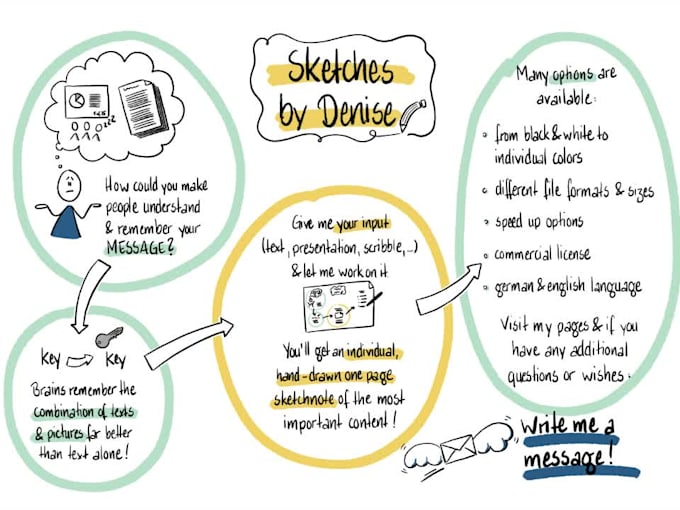 Sketches
by Denise
zzz
How could you make
people understand
& remember your
MESSAGE?
Key
Key
Brains remember the
combination of texts
& pictures far better
than text alone!
Give me your input
(text, presentation, scribble,...)
& let me work on it
You'll get an individual,
hand-drawn one page
sketchnote of the most
important content!
Many options are
available:
from black & white to
individual colors
different file formats & sizes
speed up options
commercial license
german & english language
Visit my pages & if you
have any additional
questions or wishes:
Write me a
message!